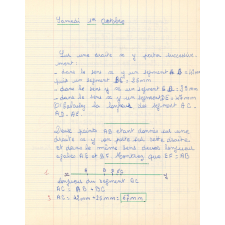 Samedi 1er Octobre
Sur une droite x y porter successive-
ment:
- dans le sens x y un segment AB = 42mm
puis un segment BC = 25mm
- dans le sens y x un segment
- dans le sens x y un segment
la longueur des segments AC -
AD - AE.
points AB étant donnés sur une
droite x y on porte sur cette droite
et dans le même sens deux longueurs
égales AE et BF. Montrez que EF = AB
Longueur du segment AC
AC = AB + BC
AC = 42mm + 25mm = 67mm